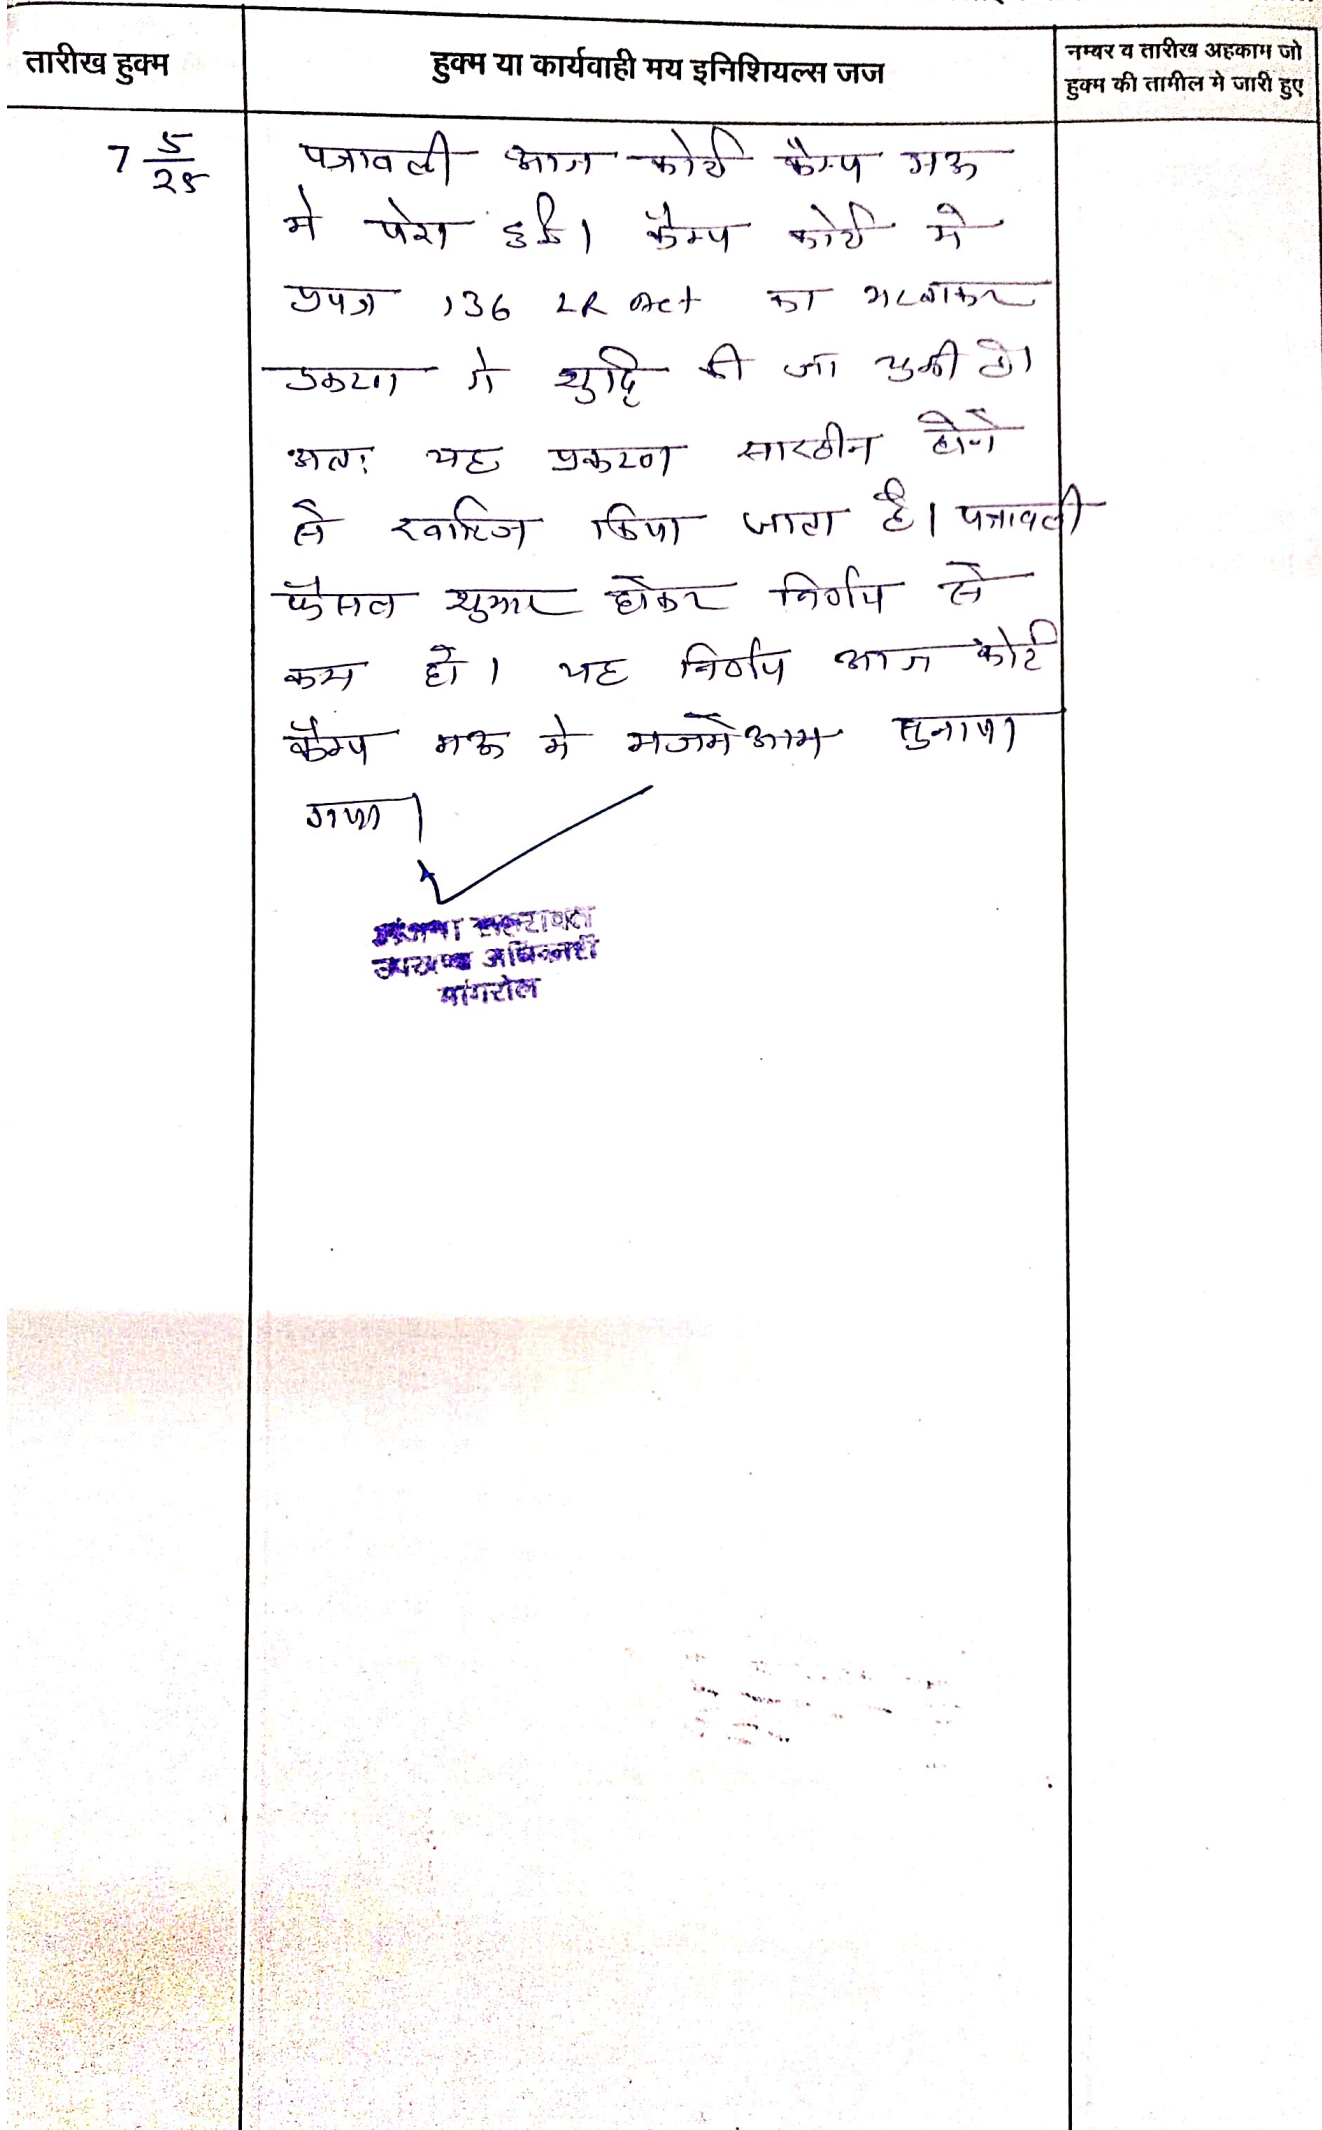 तारीख हुक्म
हुक्म या कार्यवाही मय इनिशियल्स जज
नम्बर व तारीख अहकाम जो
हुक्म की तामील मे जारी हुए
7 5/25
पत्रावली आज कोर्ट कैम्प मऊ
मे पेश हुई। कैम्प कोर्ट मे
प्रपत्र 136 LR Act का भरवाकर
प्रकरण मे शुद्धि की जा चुकी है।
अतः यह प्रकरण सारहीन होने
से खारिज किया जाता है। पत्रावली
फैसल शुमार होकर निर्णय से
कम हो। यह निर्णय आज कोर्ट
कैम्प मऊ मे मजमेआम सुनाया
गया।
उपखण्ड अधिकारी
मांगरोल